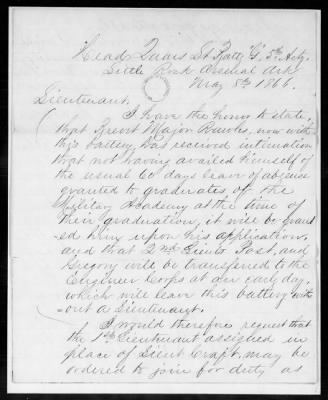 Head Quars Lt Batty "G", 5th Arty,
Little Rock Arsenal Ark
May 8th 1866.
Lieutenant,
I have the honor to state,
that Brevet Major Rawles, now with
this battery, has received intimation
that not having availed himself of
the usual 60 days leave of absence
granted to graduates of the
Military Academy at the time of
their graduation, it will be grant
ed him upon his application,
and that 2nd Lieuts Post, and
Gregory will be transferred to the
Engineer Corps at an early day,
which will leave this battery with
out a Lieutenant.
I would therefore request that
the 1st Lieutenant assigned in
place of Lieut Craft, may be
ordered to join for duty as